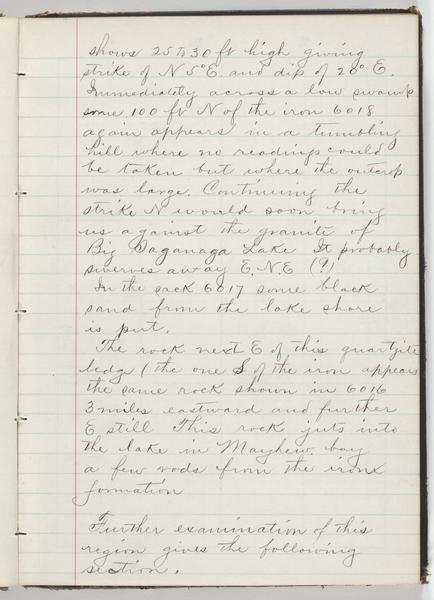 shows 25 to 30 ft high giving
strike of N 5° E. and dip of 20° E.
Immediately across a low swamp
some 100 ft N of the iron 6018
again appears in a tumbling
hill where no readings could
be taken but where the outcrop
was large. Continuing the
strike N would soon bring
us against the granite of
Big Saganaga Lake It probably
swerves away E.N.E (?)
In the sack 6017 some black
sand from the lake shore
is put.
The rock next E of this quartzite
ledg (the one S of the iron appears
the same rock shown in 6016
3 miles eastward and further
E still This rock juts into
the lake in Mayhew bay
a few rods from the iron
formation
Further examination of this
region gives the following
section.